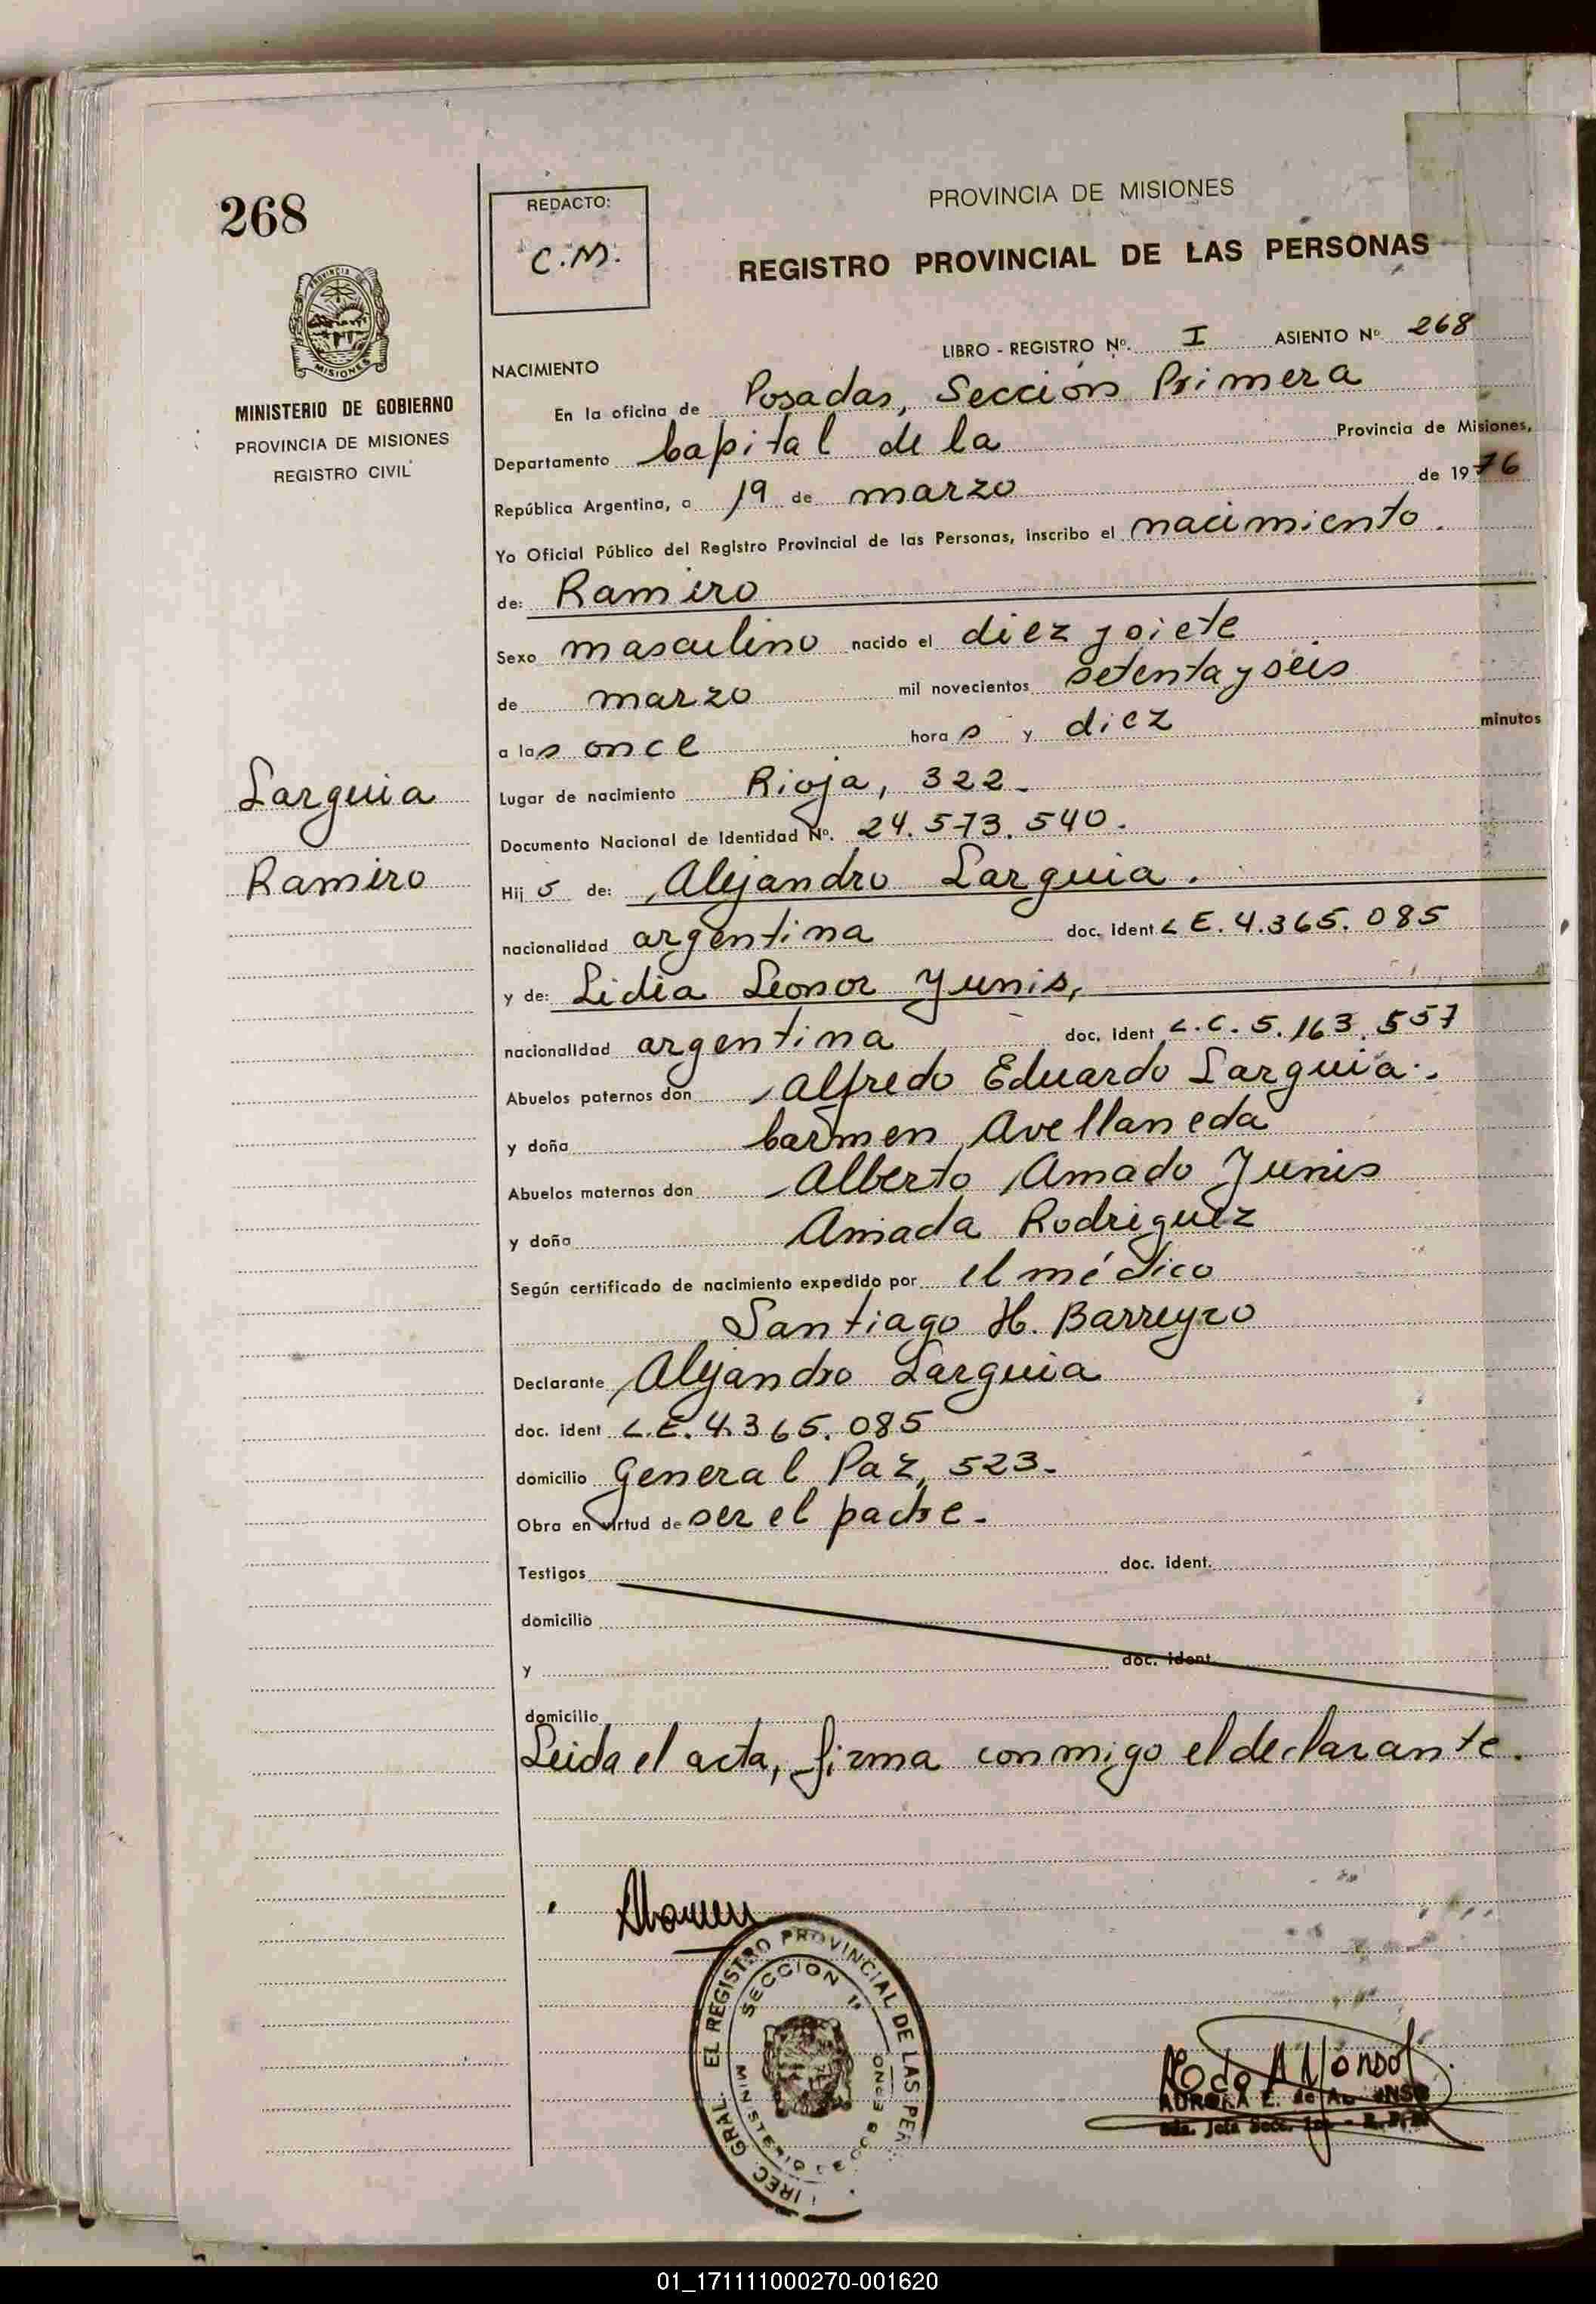 268
PROVINCIA DE MISIONES
MINISTERIO DE GOBIERNO
PROVINCIA DE MISIONES
REGISTRO CIVIL
Larguia
Ramiro
REDACTO:
C.M.
PROVINCIA DE MISIONES
REGISTRO PROVINCIAL DE LAS PERSONAS
LIBRO - REGISTRO Nº. I ASIENTO Nº 268
NACIMIENTO
En la oficina de Posadas, Sección Primera
Departamento Capital de la Provincia de Misiones,
República Argentina, a 19 de marzo de 1976
Yo Oficial Público del Registro Provincial de las Personas, inscribo el nacimiento.
de: Ramiro
Sexo masculino nacido el diez y siete
de marzo mil novecientos setenta y seis
a las once horas y diez minutos
Lugar de nacimiento Rioja, 322.-
Documento Nacional de Identidad Nº. 24.573.540.
Hijo de: Alejandro Larguia.
nacionalidad argentina doc. ident L E. 4.365.085
y de: Lidia Leonor Yunis,
nacionalidad argentina doc. ident L.C. 5.163.557
Abuelos paternos don Alfredo Eduardo Larguia.
y doña Carmen Avellaneda
Abuelos maternos don Alberto Amado Yunis
y doña Amada Rodriguez
Según certificado de nacimiento expedido por el médico
Santiago H. Barreyro
Declarante Alejandro Larguia
doc. ident L.E. 4.365.085
domicilio General Paz, 523.-
Obra en virtud de ser el padre.-
Testigos doc. ident.
domicilio
y doc. ident.
domicilio
Leida el acta, firma conmigo el declarante.
GRAL. EL REGISTRO PROVINCIAL DE LAS PER
SECCION 1ª
MINISTERIO DE GOBIERNO
de Alfonso
AURORA E. de
01_171111000270-001620